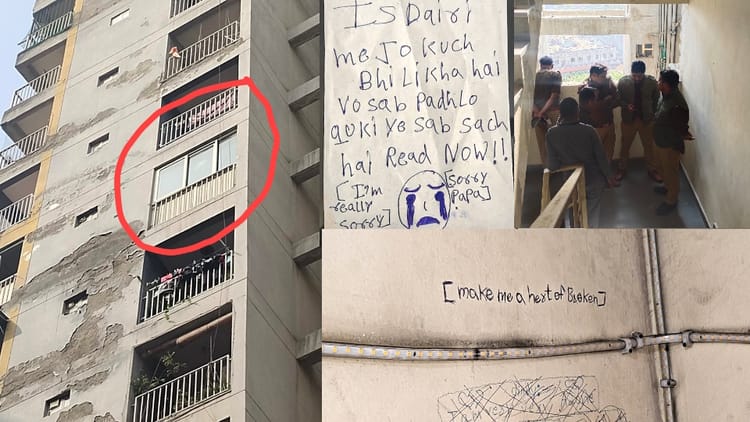 Is Dairi
me Jo kuch
Bhi Likha hai
Vo sab Padhlo
quki ye sab sach
hai Read NOW!!
[I'm
really
sorry]
[sorry
Papa]
[make me a hert of Broken]